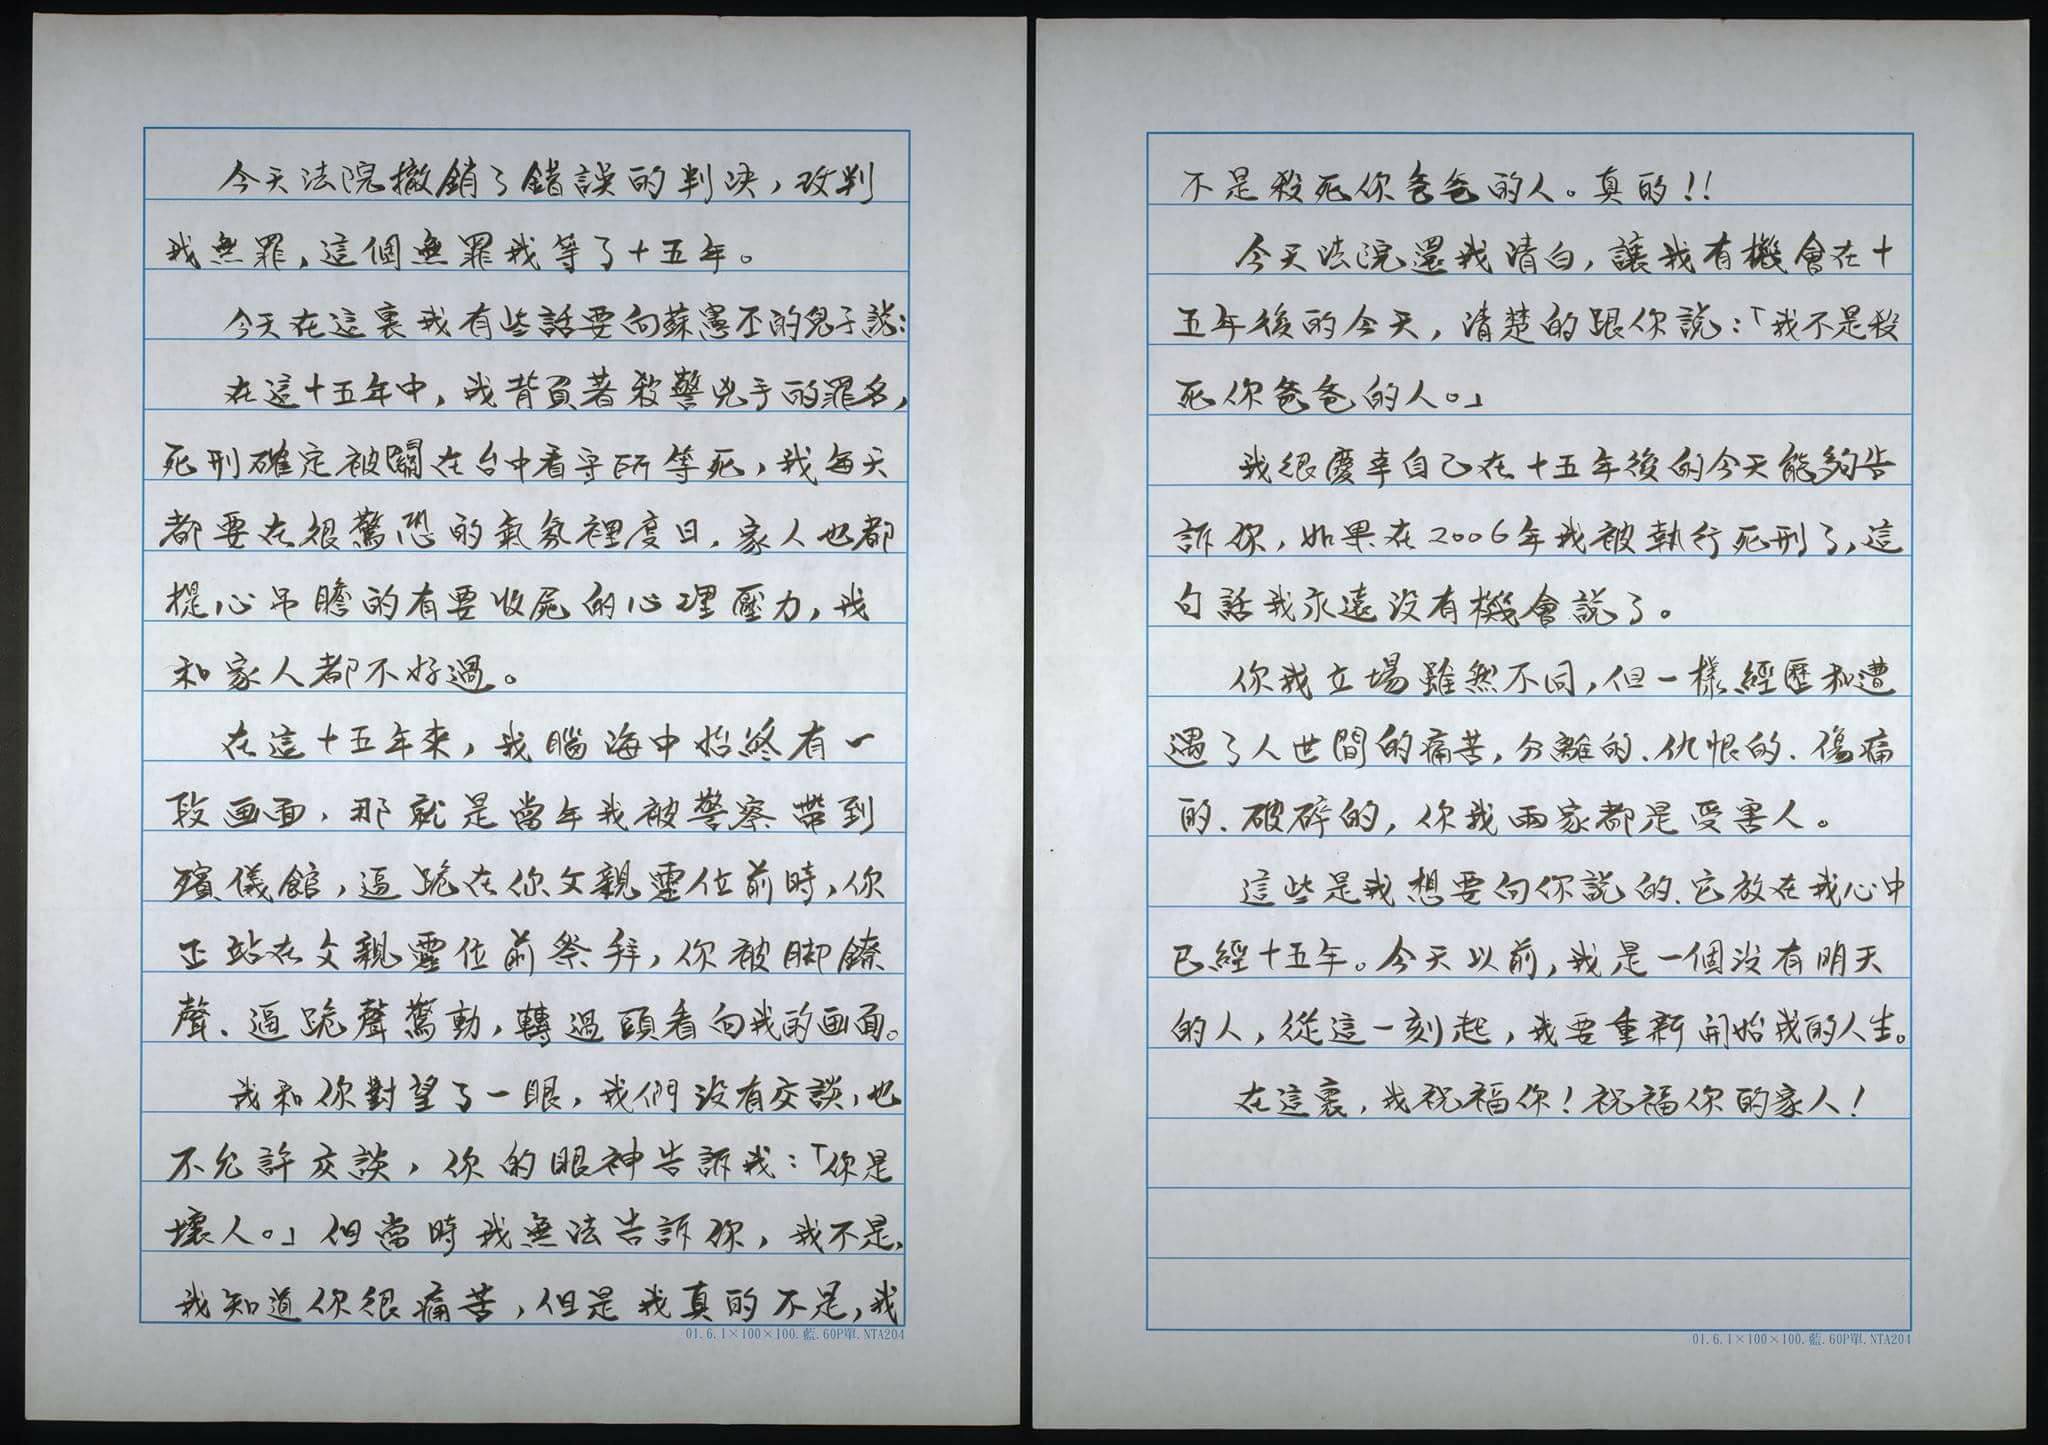 今天法院撤銷了錯誤的判決，改判
我無罪，這個無罪我等了十五年。
今天在這裏我有些話要向蘇憲丕的兒子說：
在這十五年中，我背負著殺警兇手的罪名，
死刑確定被關在台中看守所等死，我每天
都要在很驚恐的氣氛裡度日，家人也都
提心吊膽的有要收屍的心理壓力，我
和家人都不好過。
在這十五年來，我腦海中始終有一
段画面，那就是當年我被警察帶到
殯儀館，逼跪在你父親靈位前時，你
正站在父親靈位前祭拜，你被脚鐐
聲、逼跪聲驚動，轉過頭看向我的画面。
我和你對望了一眼，我們沒有交談，也
不允許交談，你的眼神告訴我：「你是
壞人。」但當時我無法告訴你，我不是，
我知道你很痛苦，但是我真的不是，我
01.6.1×100×100.藍.60P單.NTA204
不是殺死你爸爸的人。真的！！
今天法院還我清白，讓我有機會在十
五年後的今天，清楚的跟你說：「我不是殺
死你爸爸的人。」
我很慶幸自己在十五年後的今天能夠告
訴你，如果在2006年我被執行死刑了，這
句話我永遠沒有機會說了。
你我立場雖然不同，但一樣經歷和遭
遇了人世間的痛苦，分離的、仇恨的、傷痛
的、破碎的，你我兩家都是受害人。
這些是我想要向你說的、它放在我心中
已經十五年。今天以前，我是一個沒有明天
的人，從這一刻起，我要重新開始我的人生。
在這裏，我祝福你！祝福你的家人！
01.6.1×100×100.藍.60P單.NTA204